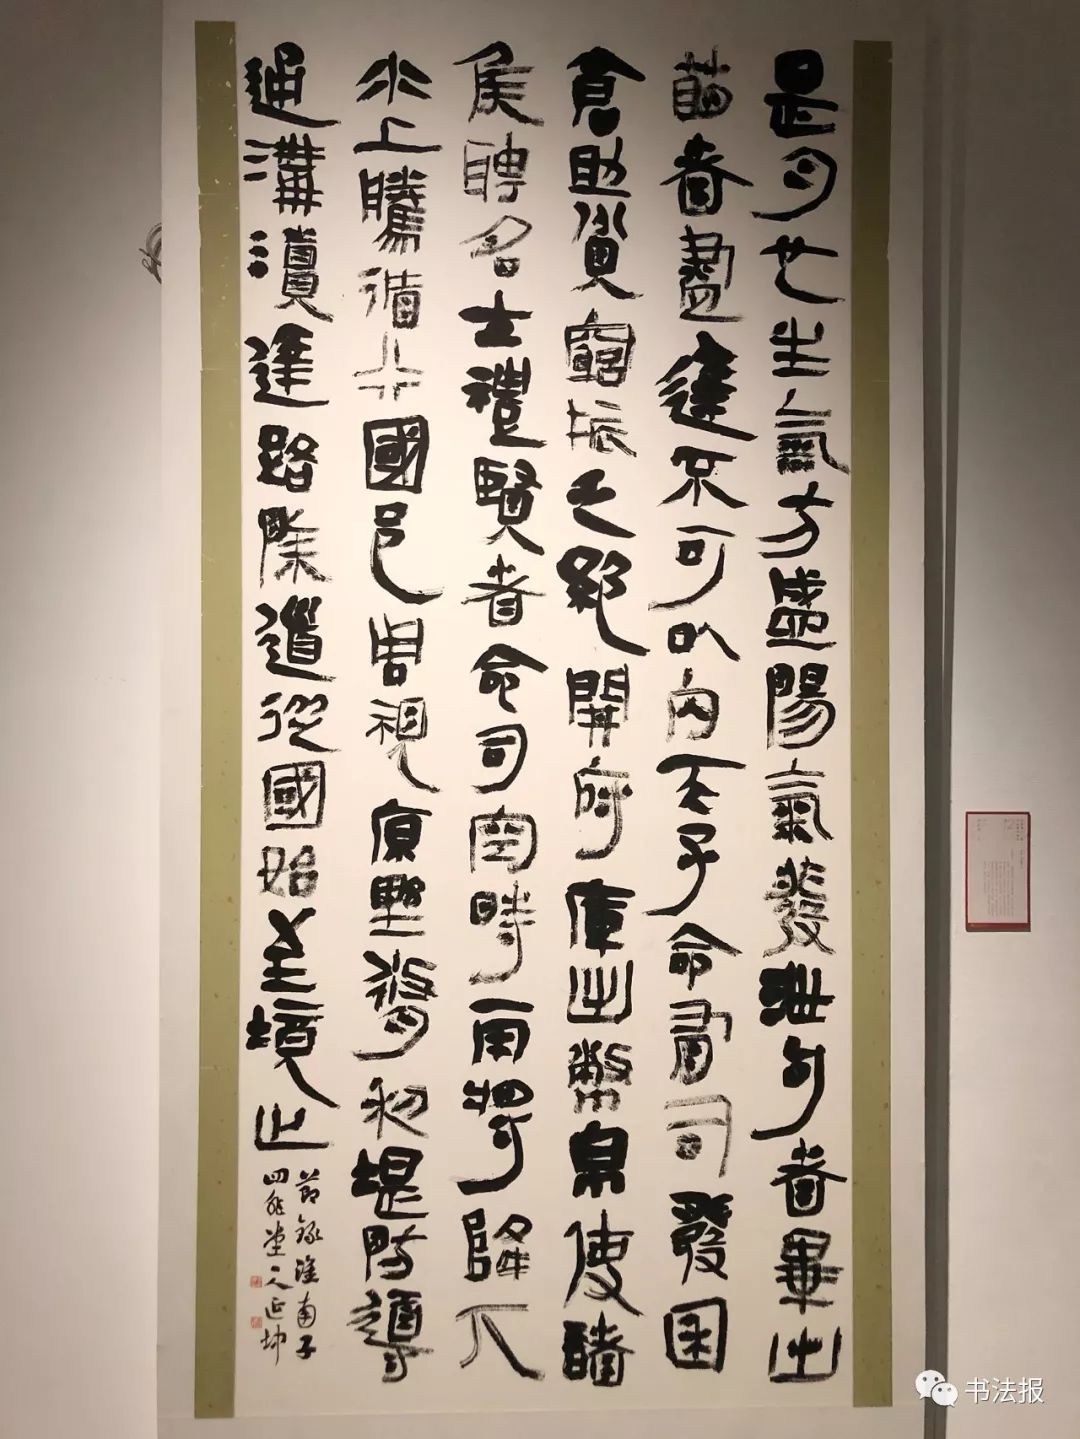 是月也生氣方盛陽氣發泄句者畢出
萌者盡達不可以內天子命有司發囷
倉助貧窮振乏絕開府庫出幣帛使諸
侯聘名士禮賢者命司空時雨將降下
水上騰循行國邑周視原野修利堤防導
通溝瀆達路除道從國始至境止
節錄淮南子
堂主人延坤
书法报